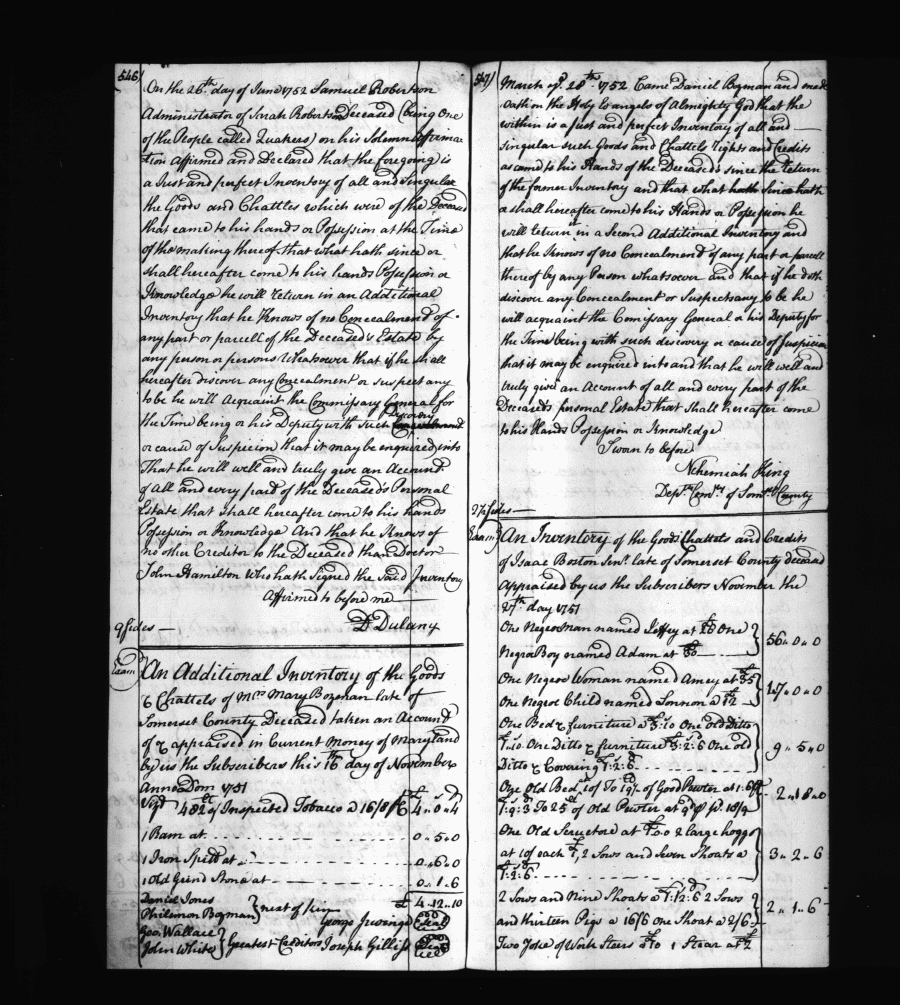 546
On the 26th day of June 1752 Samuel Robertson
Administrator of Sarah Robertson Deceased (being One
of the People called Quakers) on his Solemn Affirma
tion Affirmed and Declared that the foregoing is
a Just and perfect Inventory of all and Singular
the Goods and Chattles which were of the Deceased
that came to his hands or Possession at the Time
of the making thereof that what hath since or
Shall hereafter come to his hands Possession or
Knowledge he will return in an Additional
Inventory that he Knows of no Concealment of
any part or parcell of the Deceased's Estate by
any person or persons Whatsover that if he shall
hereafter discover any Concealment or suspect any
to be he will Acquaint the Commissary General for
the Time being or his Deputy with such Discovery
or cause of Suspicion that it may be enquired into
That he will well and truly give an Account
of all and every part of the Deceased's Personal
Estate that shall hereafter come to his hands
Possession or Knowledge And that he Knows of
no other Creditor to the Deceased than Doctor
John Hamilton Who hath Signed the said Inventory
Affirmed to before me
9 sides — D Dulany
Exam
An Additional Inventory of the Goods
& Chattels of Mrs Mary Bozman late of
Somerset County Deceased taken an Account
of & appraised in Current Money of Maryland
by us the Subscribers this 16th day of November
Anno Dom 1751
482 lb of Inspected Tobacco a 16/8 4 " 0 " 4
1 Barn at 0 " 5 " 0
1 Iron Spitt at 0 " 6 " 0
1 Old Grind Stone at 0 " 1 " 6
Daniel Jones £ 4 " 12 " 10
Philemon Bozman } next of kin George Irving Seal
Geo. Wallace
John White } Greatest Creditors Joseph Gilliss Seal
547
March ye 28th 1752 Came Daniel Bozman and made
oath on the Holy Evangels of Almighty God that the
within is a just and perfect Inventory of all and
singular such Goods and Chattels rights and Credits
as came to his Hands of the Deceased's since the return
of the former Inventory and that what hath since hath
or shall hereafter come to his Hands or Possession he
will return in a Second Additional Inventory and
that he Knows of no Concealment of any part or parcell
thereof by any Person whatsover and that if he doth
discover any Concealment or Suspects any to be he
will acquaint the Comissary General or his Deputy for
the Time being with such discovery or cause of Suspicion
that it may be enquired into and that he will well and
truly give an Account of all and every part of the
Deceased's personal Estate that shall hereafter come
to his Hands Possession or Knowledge
Sworn to before
Nehemiah King
Depty Comry of Somst County
sides —
Exam
An Inventory of the Goods Chattels and Credits
of Isaac Boston Senr. late of Somerset County deceased
Appraised by us the Subscribers November the
27th day 1751
One Negro Man named Jeffey at £26 One
Negro Boy named Adam at £30 56 " 0 " 0
One Negroe Woman named Amey at £35
One Negroe Child named Sonnon a £12 47 " 0 " 0
One Bed & furniture a £3:10 One old Ditto
£1:10 One Ditto & furniture £3:2:6 One old
Ditto & Covering £1:2:6 9 " 5 " 0
One Old Bed 10/ To 19 lb of Good Pewter at 1:6
£1:9:3 To 25 lb of Old Pewter at 9d p lb 18/9 2 " 18 " 0
One Old Scructore at £20/ 2 large hoggs
at 10/ each £1, 2 Sows and Seven Shoats a
£1:2:6 3 " 2 " 6
2 Sows and Nine Shoats a £1:12:6 2 Sows
and thirteen Pigs a 16/6 One Shoat a 2/6 2 " 1 " 6
Two Yoke of Work Steers a £10 1 Stear at £2